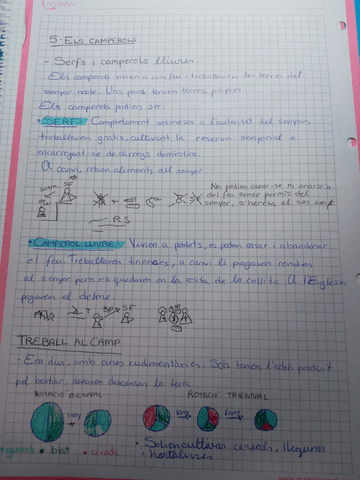 5-ELS CAMPEROLS
- Serfs i camperols lliures.
Els camperols vivien a una feu i treballaven les terres del
senyor noble. Uns pocs tenien terres pròpies
Els camperols podien ser:
• SERFS: Completament sotmesos a l'autoritat del senyor,
treballaven gratis, cultivant la reserva senyorial o
encarregant-se de càrregs domèstics.
A canvi, rebien aliments del senyor
SF
No podien casar-se ni anar-se'n
del feu sense permís del
senyor, s'heretava
RS
• CAMPEROL LLIURE: Vivien a poblats, es podien casar i abandonar
el feu. Treballaven tinences, a canvi li pagaven rendes
al senyor però es quedaven en la resta de la collita. A l'Església
pagaven el delme.
SF
TREBALL AL CAMP
• Era dur, amb eines rudimentàries. Sols tenien l'adob produït
pel bestiar, deixaven descansar la terra
ROTACIÓ BIENNAL
ROTACIÓ TRIENNAL
1 any
1 any
1 any
• guaret • blat • civada
• Solien cultivar cereals, llegums
i hortalisses